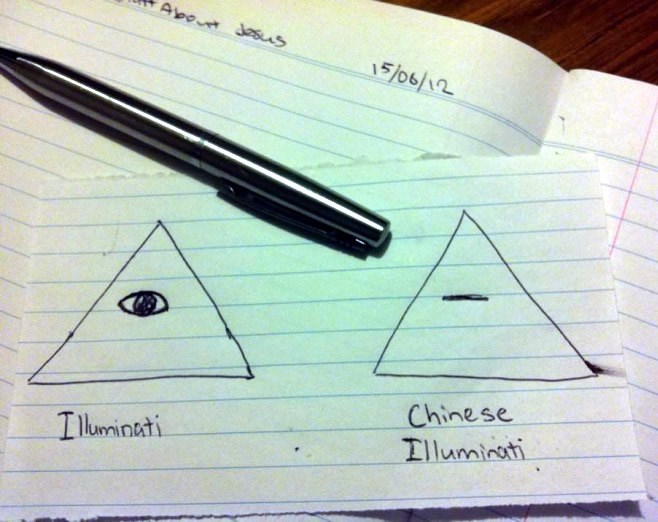 About Jesus
15/06/12
Illuminati
Chinese
Illuminati